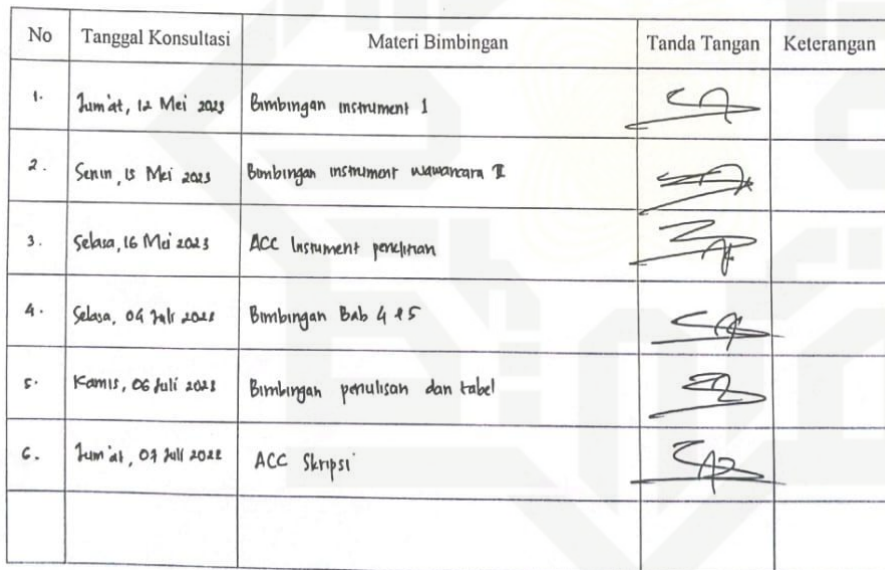 No Tanggal Konsultasi Materi Bimbingan Tanda Tangan Keterangan
1. Jum'at, 12 Mei 2023 Bimbingan instrument 1
2. Senin, 15 Mei 2023 Bimbingan instrument wawancara II
3. Selasa, 16 Mei 2023 ACC Instrument penelitian
4. Selasa, 04 Juli 2023 Bimbingan Bab 4 & 5
5. Kamis, 06 Juli 2023 Bimbingan penulisan dan tabel
6. Jum'at, 07 Juli 2023 ACC Skripsi